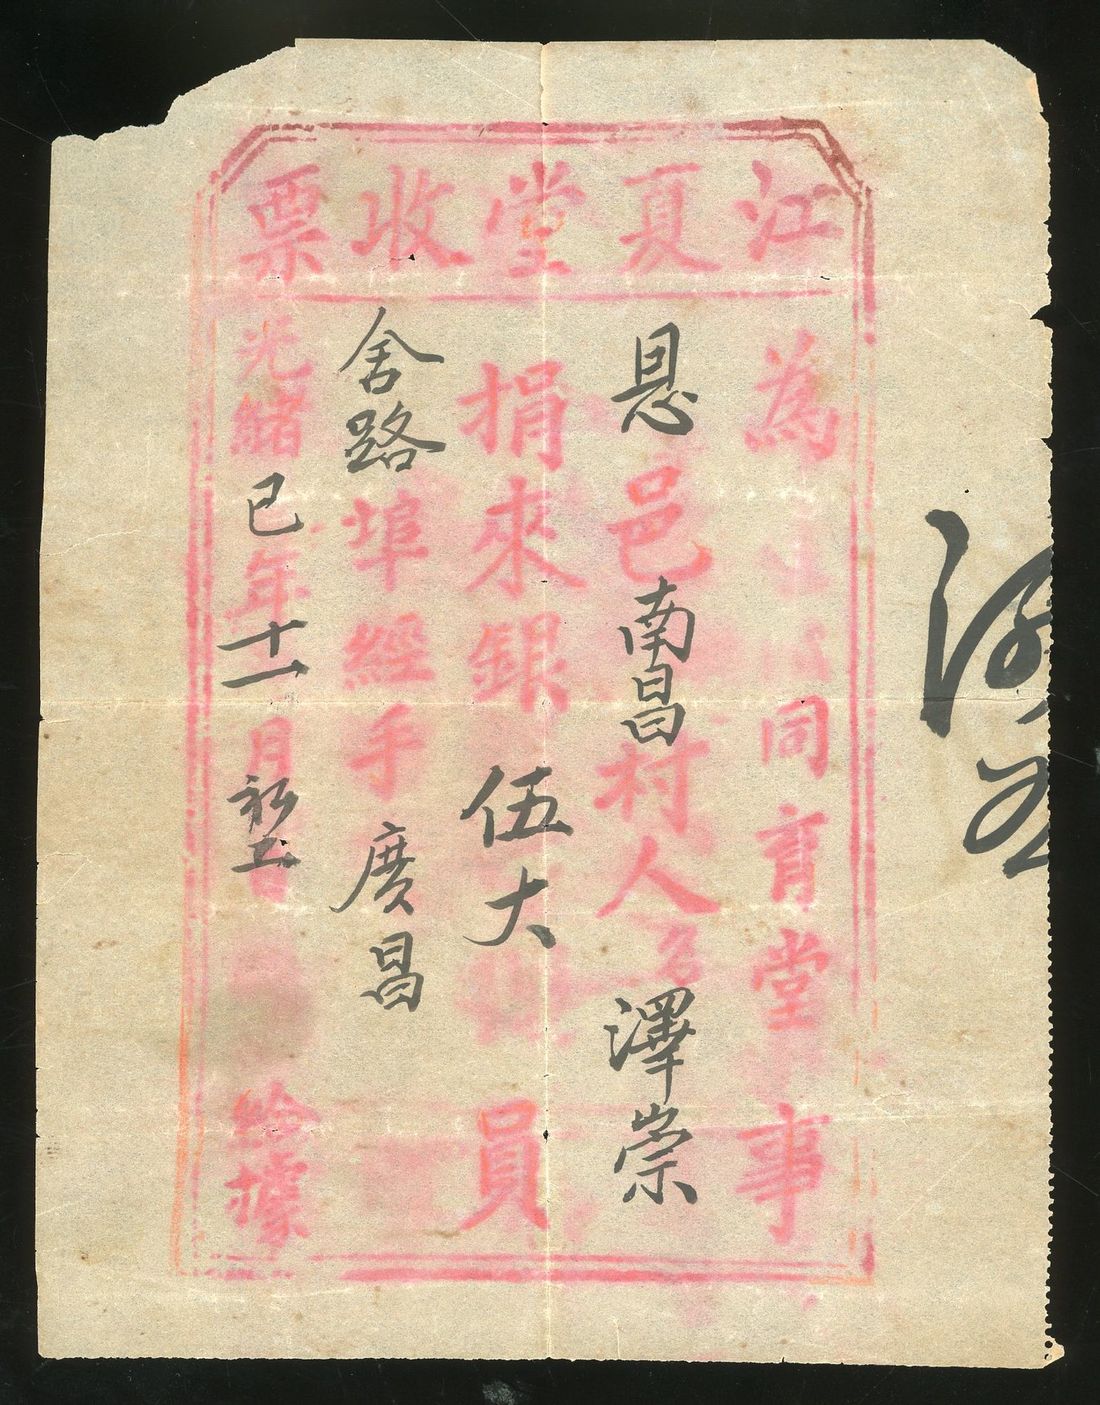 江夏堂收票
為同育堂事
恩邑南昌村人名澤崇
捐來銀伍大員
舍路埠經手廣昌
光緒巳年十一月初五給據